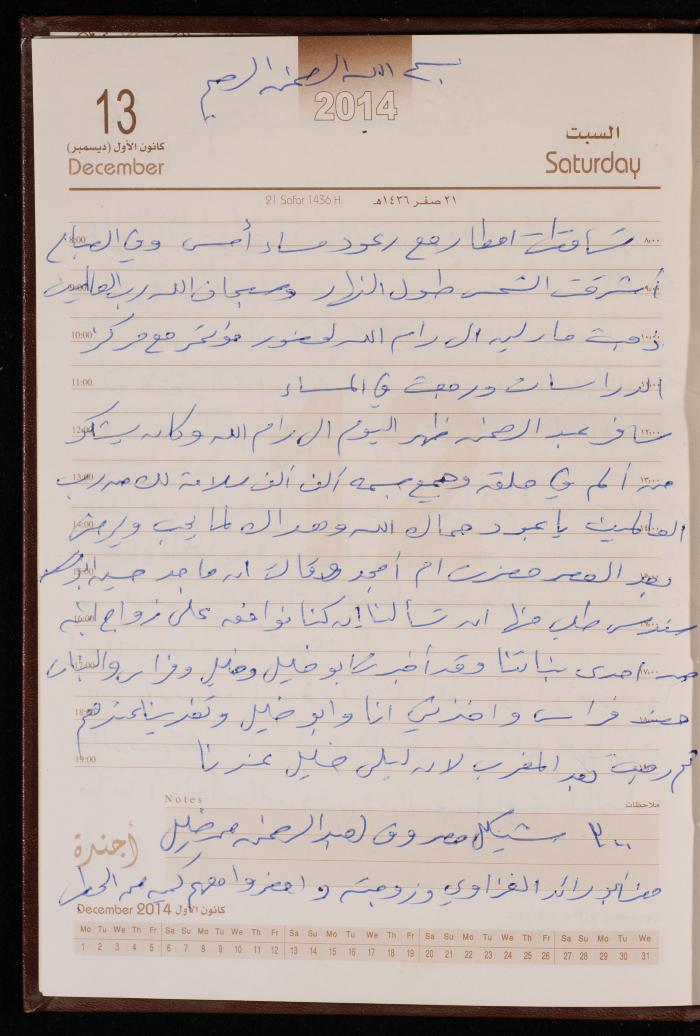 بسم الله الرحمن الرحيم
2014
13
كانون الأول (ديسمبر)
December
السبت
Saturday
21 Safar 1436 H
٢١ صفـر ١٤٣٦هـ
8:00 تساقطت امطار مع رعود مساء أمس وفي الصباح ٨:٠٠
9:00 أشرقت الشمس طول النهار وسبحان الله رب العالمين ٩:٠٠
10:00 ذهبت مارليه الى رام الله لحضور مؤتمر مع مركز ١٠:٠٠
11:00 الدراسات ورجعت في المساء ١١:٠٠
12:00 سافر عبد الرحمن ظهر اليوم الى رام الله وكان يشكو ١٢:٠٠
13:00 من ألم في حلقه وجميع جسمه ألف ألف سلامة لك من رب ١٣:٠٠
14:00 العالمين يا عبود حماك الله وهداك لما يحب ويرضى ١٤:٠٠
بعد العصر حضرت ام أمجد وقالت ان ماجد حسين
16:00 سندس طلب منها ان تسألنا إن كنا نوافق على زواج ابنه
17:00 من احدى بناتنا وقد أخبرنا ابو خليل وخليل وفراس والبنات ١٧:٠٠
18:00 حضر فراس واخذني انا وابو خليل وتغدينا عندهم ١٨:٠٠
19:00 ثم رجعت بعد المغرب لان ليلى خليل عندنا
Notes
ملاحظات
أجندة
٣٠٠ شيكل مصروف لعبد الرحمن من خليل
حضر ابو رائد الغزاوي وزوجته واحضروا معهم كيس من
December 2014 كانون الأول
Mo Tu We Th Fr Sa Su Mo Tu We Th Fr Sa Su Mo Tu We Th Fr Sa Su Mo Tu We Th Fr Sa Su Mo Tu We
1 2 3 4 5 6 7 8 9 10 11 12 13 14 15 16 17 18 19 20 21 22 23 24 25 26 27 28 29 30 31